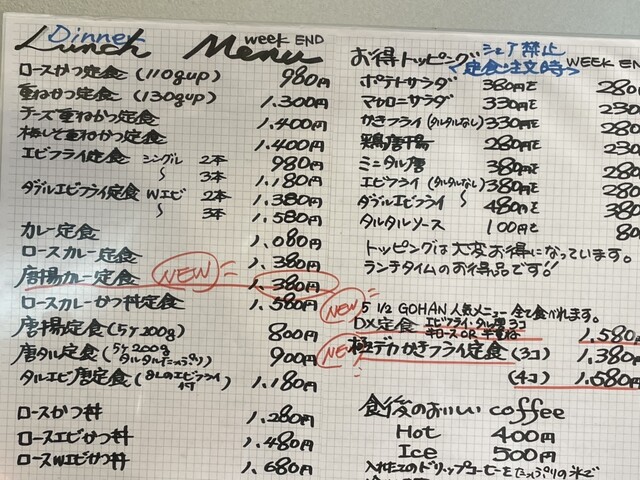 Dinner
Lunch Menu WEEK END
ロースかつ定食 (110gup) 980円
重ねかつ定食 (130gup) 1,300円
チーズ重ねかつ定食 1,400円
梅しそ重ねかつ定食 1,400円
エビフライ定食 シングル 2本 980円
〜 3本 1,180円
ダブルエビフライ定食 Wエビ 2本 1,380円
〜 3本 1,580円
カレー定食 1,080円
ロースカレー定食 1,380円
唐揚カレー定食 NEW 1,380円
ロースカレーかつ丼定食 1,580円
唐揚定食 (5ケ200g) 800円
唐タル定食 (5ケ200g タルタルたっぷり) 900円
タルエビ唐定食 (8Lのエビフライ付) 1,180円
ロースかつ丼 1,280円
ロースエビかつ丼 1,480円
ロースWエビかつ丼 1,680円
お得トッピング シェア禁止
定食注文時 WEEK EN
ポテトサラダ 380円を 280
マカロニサラダ 330円を 230
かきフライ (タルタルなし) 330円を 280
鶏唐揚 280円を 230
ミニタル唐 380円を 280
エビフライ (タルタルなし) 380円を 280
ダブルエビフライ 〜 480円を 380
タルタルソース 100円を 80
トッピングは大変お得になっています。
ランチタイムのお得品です!
NEW 5 1/2 GOHAN 人気メニュー 全て食べれます。
DX定食 エビフライ・タル唐3コ 1,580
NEW 極デカかきフライ定食 (3コ) 1,380
(4コ) 1,580円
食後のおいしい coffee
Hot 400円
Ice 500円
入れたてのドリップコーヒーをたっぷりの氷で